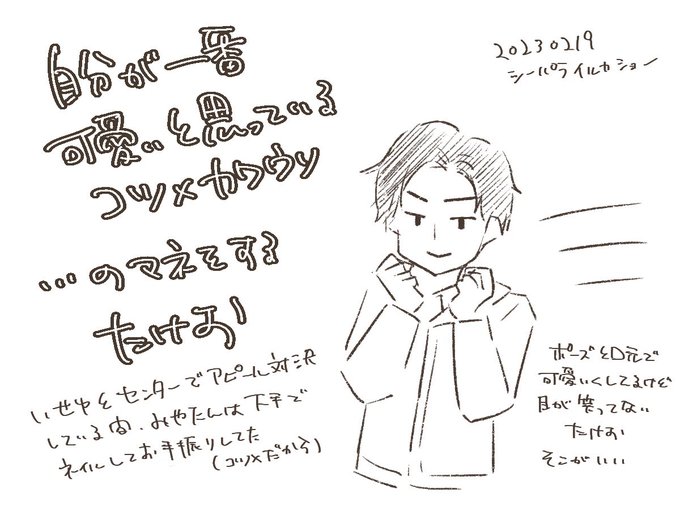 自分が一番
可愛いと思っている
コツメカワウソ
…のマネをする
たけお
20230219
シーパライルカショー
いせやとセンターでアピール対決
している間、みやたんは下手で
ネイルしてお手振りしてた
(コツメだから)
ポーズと口元で
可愛いくしてるけど
目が笑ってない
たけお
そこがいい